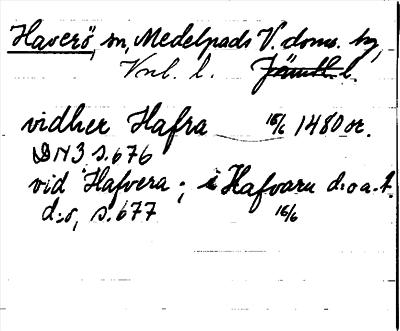 Haverö, sn, Medelpads V. doms. hg,
Vnl. l. Jämtl. l.
vidher Hafra 16/6 1480 or.
DN3 s. 676
vid Hafvera ; i Hafvaru d:o a. f.
d:o, s. 677 16/6